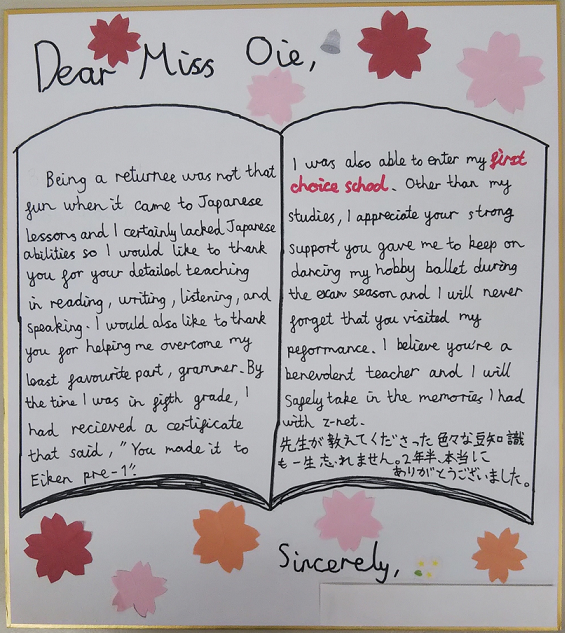 Dear Miss Oie,
Being a returnee was not that
fun when it came to Japanese
lessons and I certainly lacked Japanese
abilities so I would like to thank
you for your detailed teaching
in reading, writing, listening, and
speaking. I would also like to thank
you for helping me overcome my
least favourite part, grammer. By
the time I was in fifth grade, I
had recieved a certificate
that said, "You made it to
Eiken pre-1".
I was also able to enter my first
choice school. Other than my
studies, I appreciate your strong
support you gave me to keep on
dancing my hobby ballet during
the exam season and I will never
forget that you visited my
peformance. I believe you're a
benevolent teacher and I will
safely take in the memories I had
with z-net.
先生が教えてくださった色々な豆知識
も一生忘れません。2年半、本当に
ありがとうございました。
Sincerely,